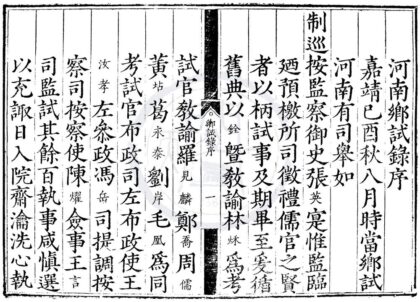 河南鄉試錄序
嘉靖己酉秋八月時當鄉試
河南有司舉如
制巡按監察御史張英寔惟監臨
廼預檄所司徵禮儒官之賢
者以柄試事及期畢至爰循
舊典以銓暨教諭林烌為考
鄉試錄序
一
試官教諭羅見麟鄭喬周儒
黃坫葛永泰劉岸毛鳳為同
考試官布政司左布政使王
汝孝左叅政馮岳司提調按
察司按察使陳燿僉事王言
司監試其餘百執事咸慎選
以充諏日入院齋瀹洗心執